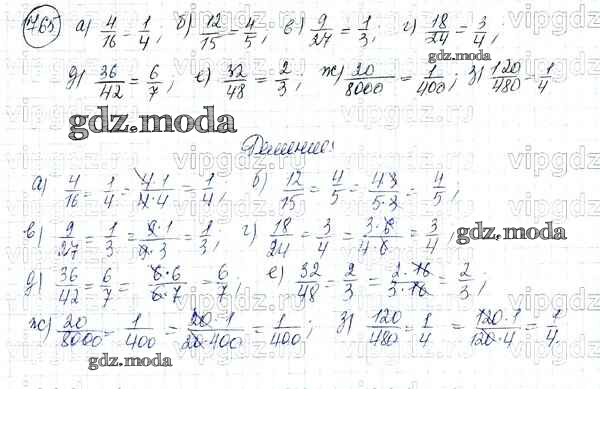 765 а) 4/16 = 1/4; б) 12/15 = 4/5; в) 9/27 = 1/3; г) 18/24 = 3/4;
gdz.moda
д) 36/42 = 6/7; е) 32/48 = 2/3; ж) 20/8000 = 1/400; з) 120/480 = 1/4
gdz.moda
Решение:
а) 4/16 = 1/4 = 4·1/4·4 = 1/4; б) 12/15 = 4/5 = 4·3/5·3 = 4/5;
в) 9/27 = 1/3 = 9·1/9·3 = 1/3; г) 18/24 = 3/4 = 3·6/4·6 = 3/4;
gdz.moda
д) 36/42 = 6/7 = 6·6/6·7 = 6/7; е) 32/48 = 2/3 = 2·16/3·16 = 2/3;
ж) 20/8000 = 1/400 = 20·1/20·400 = 1/400; з) 120/480 = 1/4 = 120·1/120·4 = 1/4.
gdz.moda